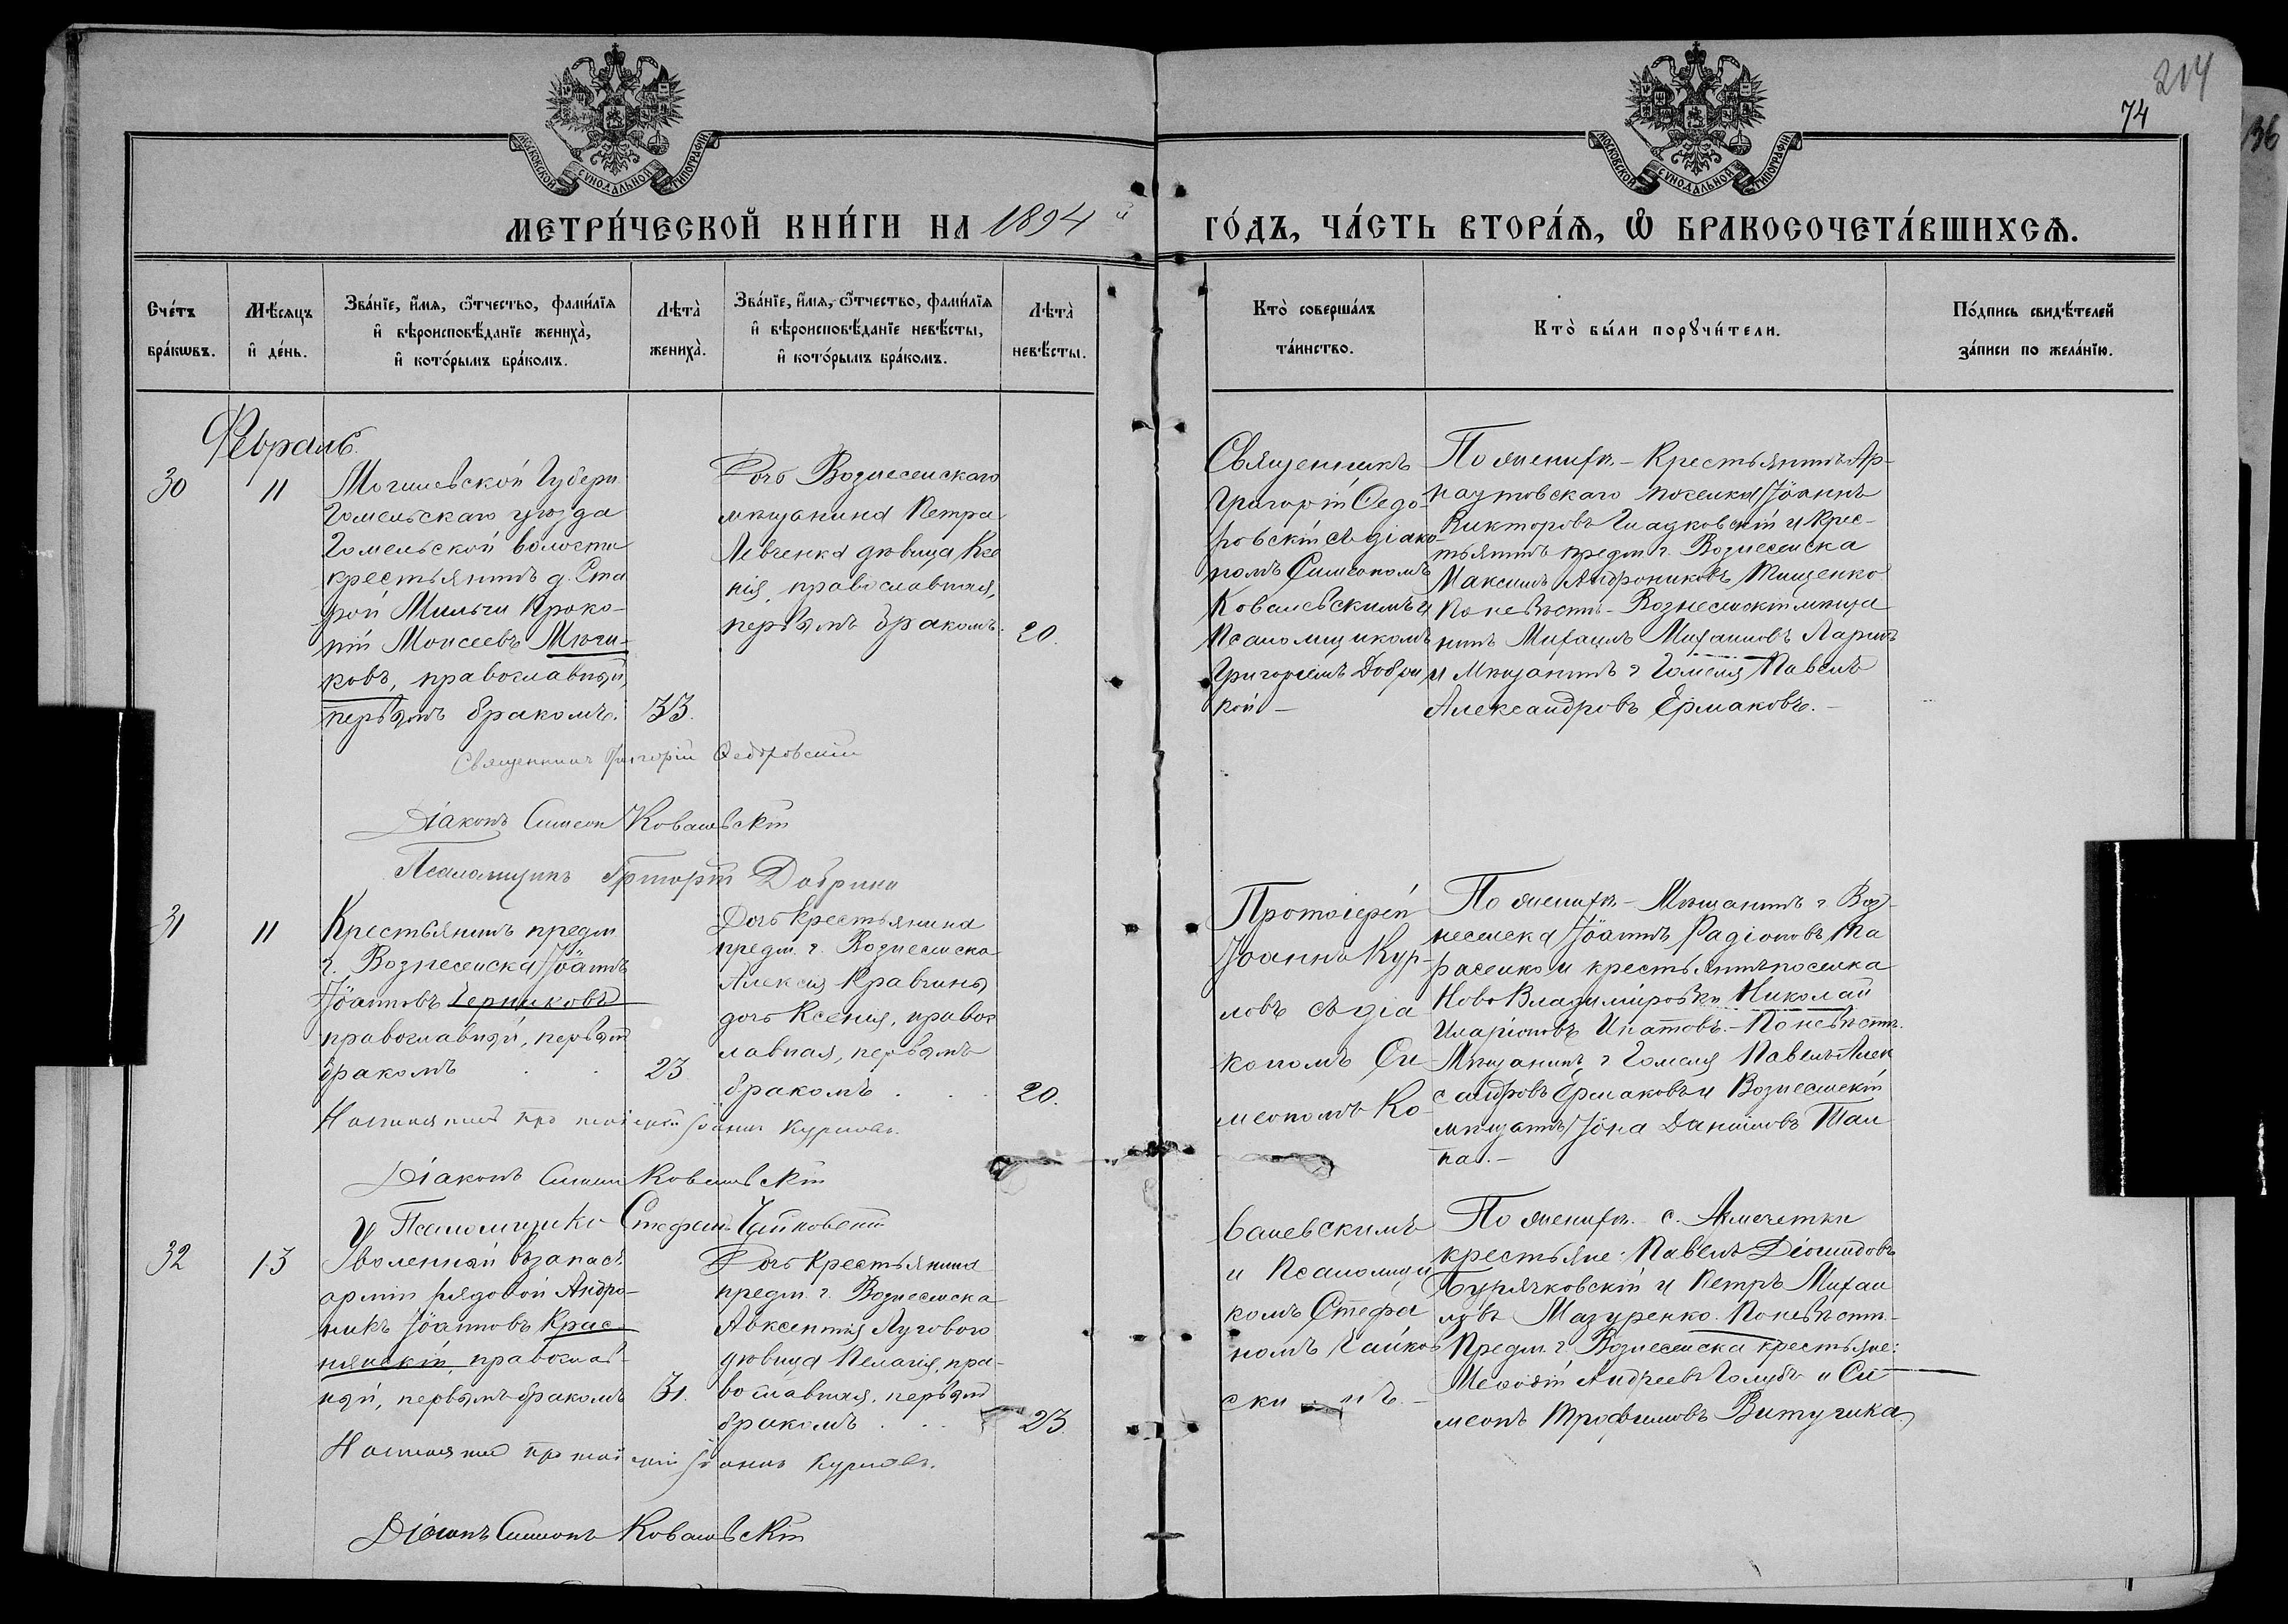 214
74
136
МОСКОВСКОЙ СѴНОДАЛЬНОЙ ТИПОГРАФІИ
МОСКОВСКОЙ СѴНОДАЛЬНОЙ ТИПОГРАФІИ
МЕТРИ́ЧЕСКОЙ КНИ́ГИ НА 1894 й
ГО́ДЪ, ЧА́СТЬ ВТОРА́Ѧ, Ѽ БРАКОСОЧЕТА́ВШИХСѦ.
Сче́тъ бра́кωвъ.
Мѣ́сяцъ и҆ де́нь.
Зва́нїе, и҆́мя, ѻ҆́тчество, фами́лїя
и҆ вѣроисповѣ́данїе жениха̀,
и҆ кото́рымъ бра́комъ.
Лѣта̀ жениха̀.
Зва́нїе, и҆́мя, ѻ҆́тчество, фами́лїя
и҆ вѣроисповѣ́данїе невѣ́сты,
и҆ кото́рымъ бра́комъ.
Лѣта̀ невѣ́сты.
Кто̀ соверша́лъ
та́инство.
Кто̀ бы́ли порꙋчи́тели.
По́дпись свидѣ́телей
за́писи по жела́нїю.
Февраль.
30
11
Могилевской Губерн
Гомельскаго уѣзда
Гомельской волости
крестьянинъ д. Ста
рой Мильчи Проко-
пій Моисеевъ Мючи-
ковъ, православный,
первымъ бракомъ.
33.
Дочь Вознесенскаго
мѣщанина Петра
Левченка дѣвица Ксе
нія, православная,
первымъ бракомъ.
20.
Священникъ
Григорій Ѳедо-
ровскій съ діако-
номъ Симеономъ
Ковалевскимъ и
Псаломщикомъ
Григоріемъ Добрин
кой. -
По женихѣ - Крестьянинъ Ар-
наутовскаго поселка Іоаннъ
Викторовъ Гладковскій и крес-
тьянинъ предм. г. Вознесенска
Максимъ Андрониковъ Тищенко
По невѣстѣ - Вознесенскій мѣща
нинъ Михаилъ Михаиловъ Ларинъ
и Мѣщанинъ г Гомеля Павелъ
Александровъ Ермаковъ. -
Священникъ Григорій Ѳедоровскій
Діаконъ Симеон Ковалевскій
Псаломщикъ Григорій Добрина
31
11
Крестьянинъ предм
г. Вознесенска Іоаннъ
Іоанновъ Черниковъ
православный, первым
бракомъ . .
23
Дочь крестьянина
предм. г. Вознесенска
Алексія Кравчина
дочь Ксенія, правос
лавная, первымъ
бракомъ . . .
20.
Протоіерей
Іоаннъ Кур-
ловъ съ діа
кономъ Си
меономъ Ко-
По женихѣ - Мѣщанинъ г Воз-
несенска Іоаннъ Радіоновъ Та
расенко и крестьянинъ поселка
Ново Владиміровки Николай
Иларіоновъ Игнатовъ. - По невѣстѣ
Мѣщанинъ г Гомеля Павелъ Алек
сандровъ Ермаковъ и Вознесенскій
мѣщанинъ Іона Даниловъ Тал
па. -
Настоятель протоіерей Іоаннъ Курловъ.
Діаконъ Симеон Ковалевскій
Псаломщикъ Стефанъ Чайковскій
32
13
Уволенный въ запасъ
арміи рядовой Андро-
никъ Іоанновъ Крас
нянскій, православ-
ный, первымъ бракомъ
31.
Дочь крестьянина
предм. г. Вознесенска
Авксентія Лугового
дѣвица Пелагія, пра-
вославная, первым
бракомъ . .
23.
валевскимъ
и Псаломщи
комъ Стефа
номъ Чайков
ски мъ. -
По женихѣ. с. Акмечетки
крестьяне: Павелъ Діомидовъ
Бурячковскій и Петръ Михаи
ловъ Мазуренко. По невѣстѣ -
Предм. г Вознесенска крестьяне:
Меѳодій Андреевъ Голубъ и Си
меонъ Трофимовъ Витучика
Настоятель протоіерей Іоаннъ Курловъ.
Діаконъ Симеонъ Ковалевскій